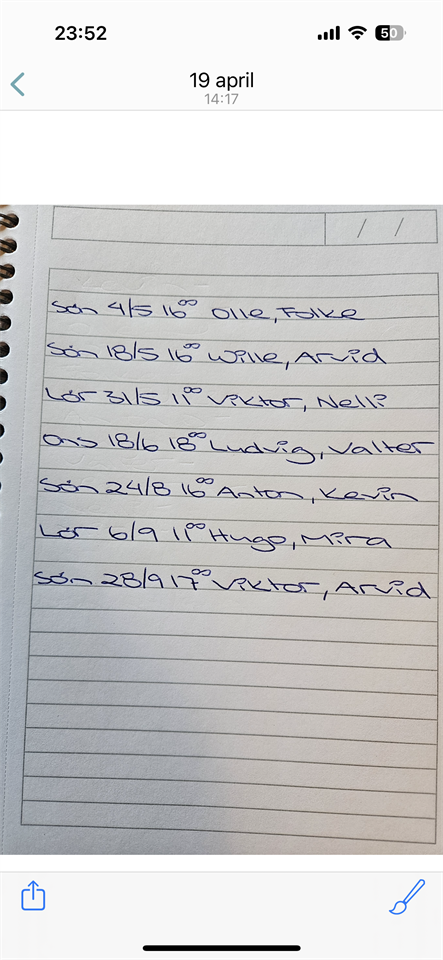 23:52
50
19 april
14:17
/ /
Sön 4/5 16⁰⁰ Olle, Folke
Sön 18/5 16⁰⁰ Wille, Arvid
Lör 31/5 11⁰⁰ Viktor, Nelli
Ons 18/6 18⁰⁰ Ludvig, Valter
Sön 24/8 16⁰⁰ Anton, Kevin
Lör 6/9 11⁰⁰ Hugo, Mira
Sön 28/9 17⁰⁰ Viktor, Arvid